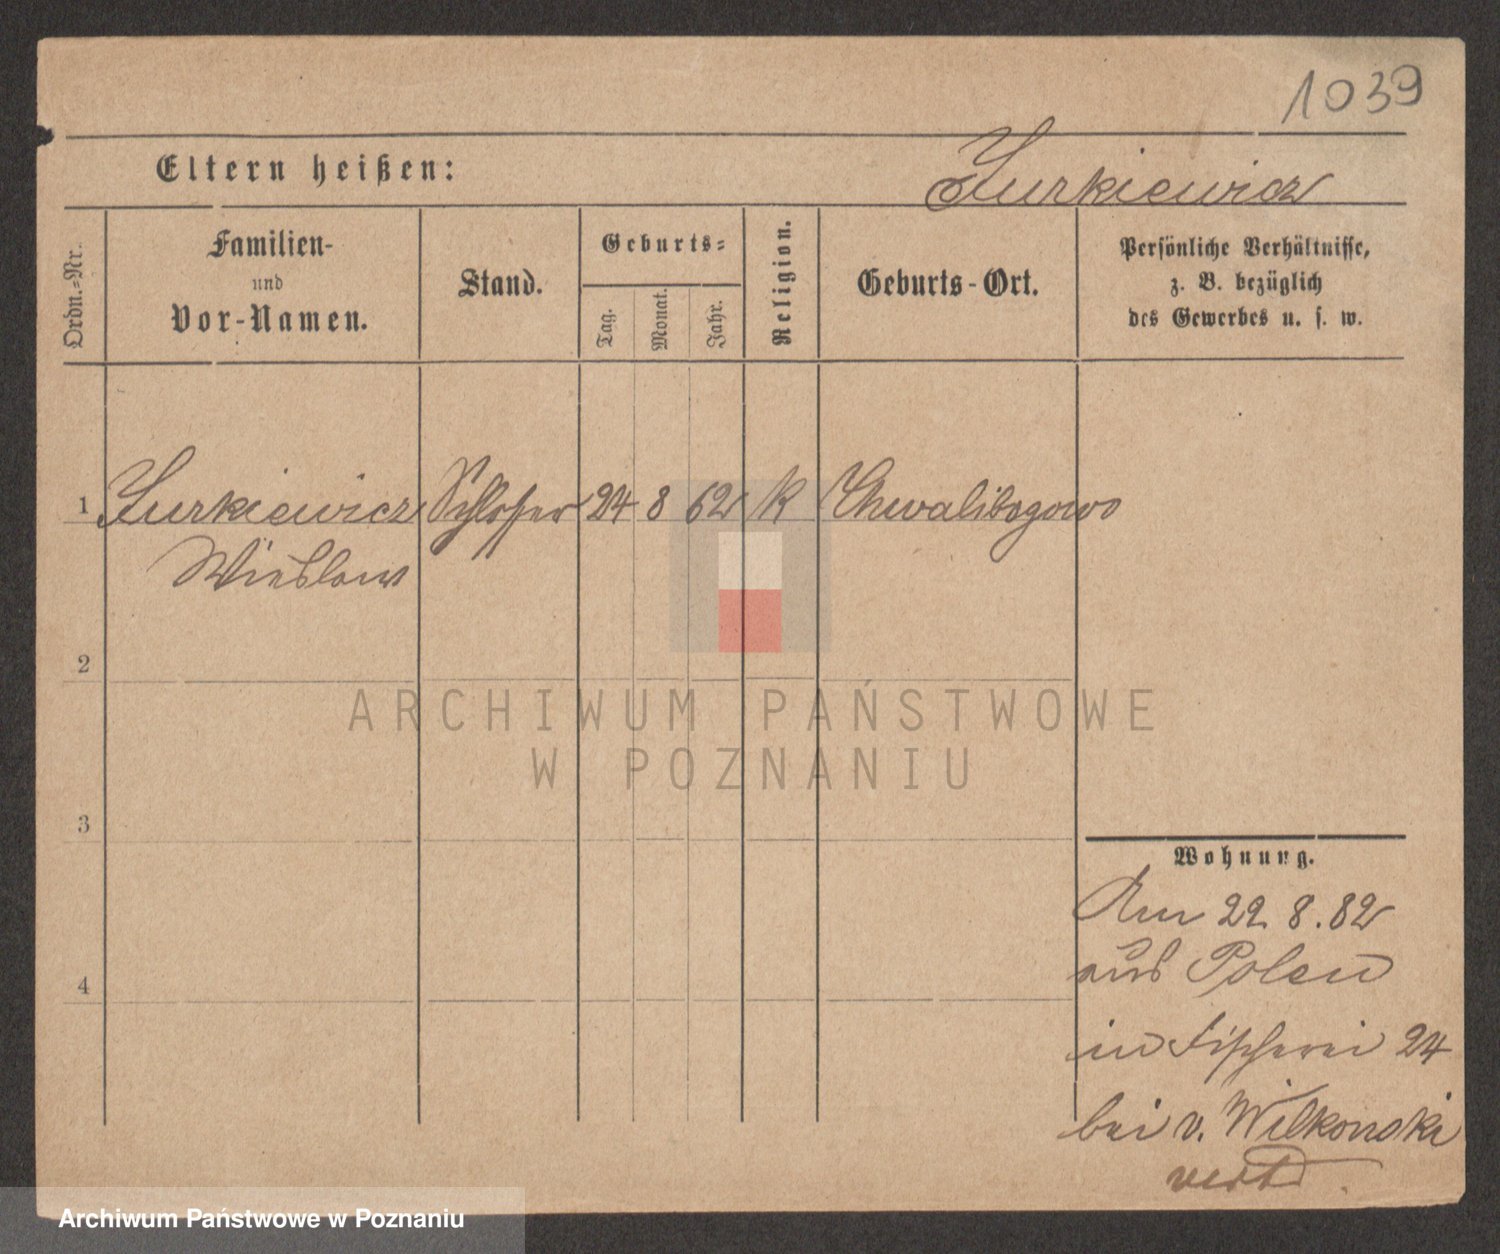 1039
Eltern heißen:
Żurkiewicz
Ordn.-Nr.
Familien-
und
Vor-Namen.
Stand.
Geburts-
Tag.
Monat.
Jahr.
Religion.
Geburts-Ort.
Persönliche Verhältnisse,
z. B. bezüglich
des Gewerbes u. s. w.
1 Żurkiewicz Schlosser 24 8 62 K Chwalibogowo
Wieslaw
2
3
4
Wohnung.
Am 22. 8. 82
aus Polen
in Fischerei 24
bei v. Wilkonski
ARCHIWUM PAŃSTWOWE
W POZNANIU
Archiwum Państwowe w Poznaniu